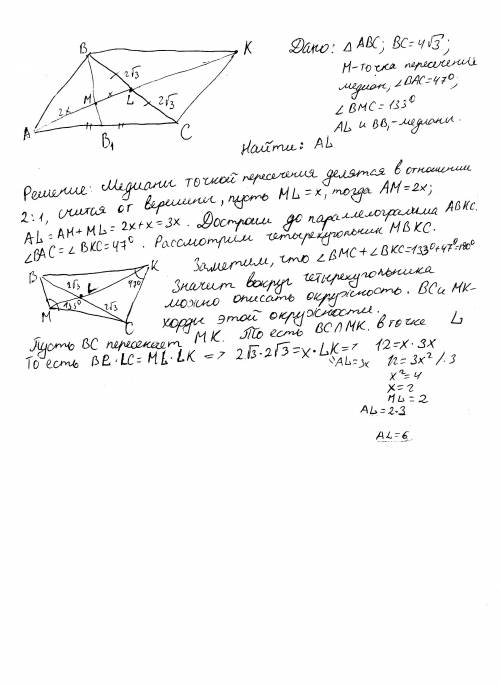 Дано: △ABC; BC=4√3;
M-точка пересечение
медиан, ∠BAC=47°,
∠BMC=133°
AL и BB₁-медианы.
Найти: AL
B
K
2√3
M
x
L
2x
2√3
A
B₁
C
Решение: Медианы точкой пересечения делятся в отношении
2:1, считая от вершины, пусть ML=x, тогда AM=2x;
AL=AM+ML=2x+x=3x. Достроим до параллелограмма ABKC.
∠BAC=∠BKC=47°. Рассмотрим четырехугольник MBKC.
B
K
2√3
L
47°
M
133°
2√3
C
Заметим, что ∠BMC+∠BKC=133°+47°=180°
Значит вокруг четырехугольника
можно описать окружность. BC и MK-
хорды этой окружности.
Пусть BC пересекает MK. То есть BC∩MK в точке L
То есть BL·LC=ML·LK => 2√3·2√3=x·LK=> 12=x·3x
AL=3x
12=3x² /:3
x²=4
x=2
ML=2
AL=2·3
AL=6